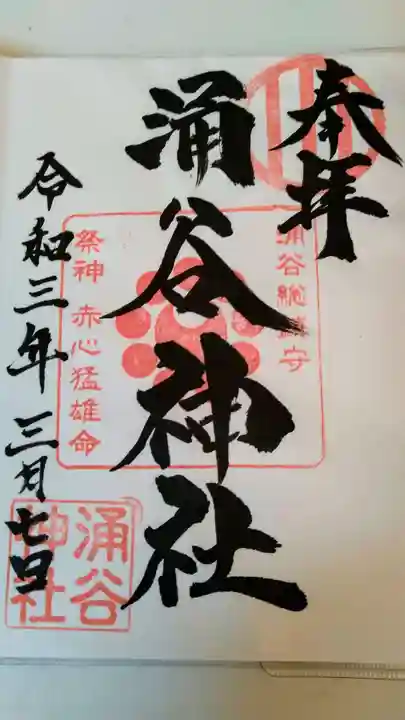 奉拝
涌谷神社
涌谷総鎮守
祭神 赤心猛雄命
令和三年 三月七日
涌谷
神社